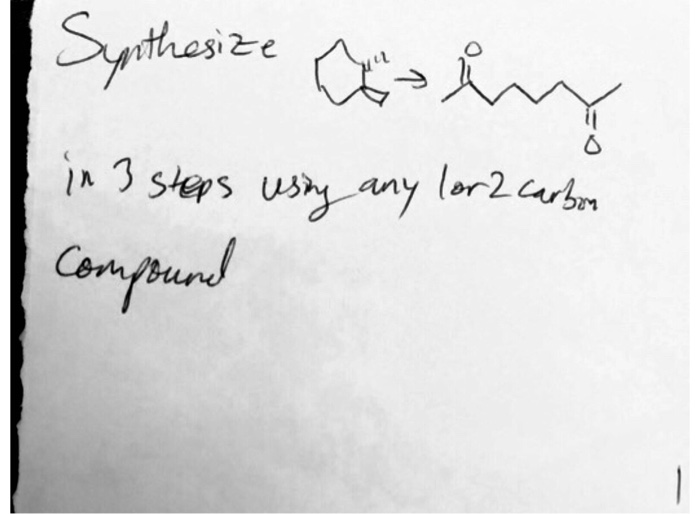 Synthesize
O
O
in 3 steps using any 1 or 2 carbon
compound
1